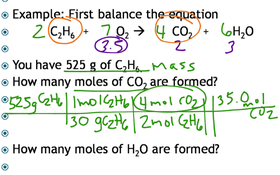 Example: First balance the equation
2 C₂H₆ + 7 O₂ → 4 CO₂ + 6 H₂O
3.5 2 3
You have 525 g of C₂H₆. mass
How many moles of CO₂ are formed?
525g C₂H₆ | 1 mol C₂H₆ | 4 mol CO₂ | 35.0 mol CO₂
30 g C₂H₆ | 2 mol C₂H₆
How many moles of H₂O are formed?